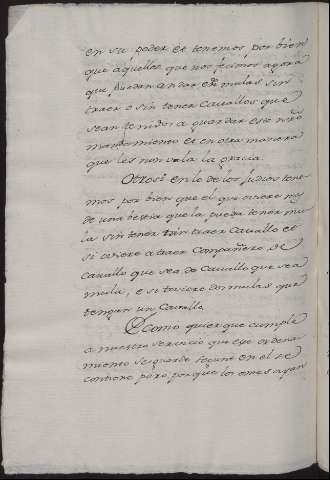 en su poder et tenemos por bien
que aquellos que nos fecimos agora
que puedan andar en mulas sin
traer o sin tener cavallos que
sean tenidos a guardar este nro
mandamiento et en otra manera
que les non vala la gracia.
Otrosi en lo de los judios tene
mos por bien que el que oviere mas
de una bestia que la pueda tener mu
la sin tener traer cavallo et
si oviere a traer compañero de
cavallo que sea de cavallo que sea
mula, e si toviere dos mulas que
tengan un Cavallo.
E como quier que cumple
a nuestro servicio que este ordena
miento se guarde segunt en el se
contiene pero porque los omes ayan